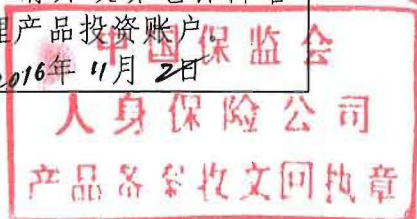 理产品投资账户。
2016年 11月 2日
中国保监会
人身保险公司
产品备案收文回执章